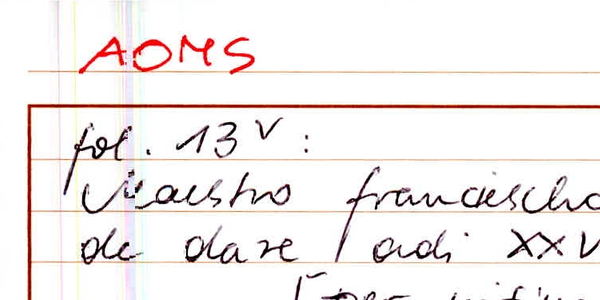 AOMS
fol. 13v:
Maestro francischo
de dare adi XXV